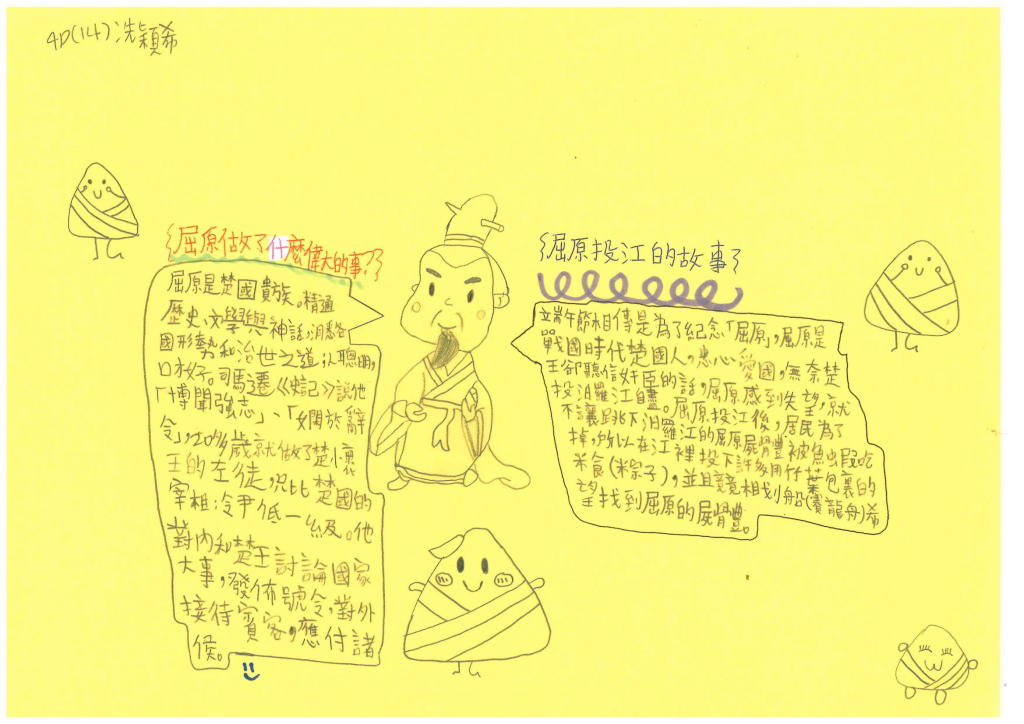 4D(14)冼穎希
屈原做了什麼偉大的事?
屈原是楚國貴族。精通
歷史、文學與神話,洞悉各
國形勢和治世之道,以聰明,
口才好。司馬遷《史記》說他
「博聞強志」、「嫻於辭
令」,20多歲就做了楚懷
王的左徒,只比楚國的
宰相令尹低一級。他
對內和楚王討論國家
大事,發佈號令,對外
接待賓客,應付諸
侯。
屈原投江的故事
端午節相傳是為了紀念「屈原」,屈原是
戰國時代楚國人。忠心愛國,無奈楚
王卻聽信奸臣的話,屈原感到失望,就
投汨羅江自盡。屈原投江後,居民為了
不讓跳下汨羅江的屈原屍體被魚蝦吃
掉,所以在江裡投下許多用竹葉包裹的
米食(粽子),並且競相划船(賽龍舟)希
望找到屈原的屍體。